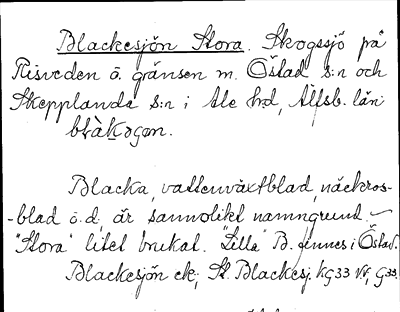 Blackesjön Stora. Skogssjö på
Risveden ö. gränsen m. Östad s:n och
Skepplanda s:n i Ale hd, Älfsb. län
Blacka, vattenväxtblad, näckros-
-blad o.d, är sannolikt namngrund. –
"Stora" litet brukat. "Lilla" B. finnes i Östad.
Blackesjön ek; St. Blackesj. KG33